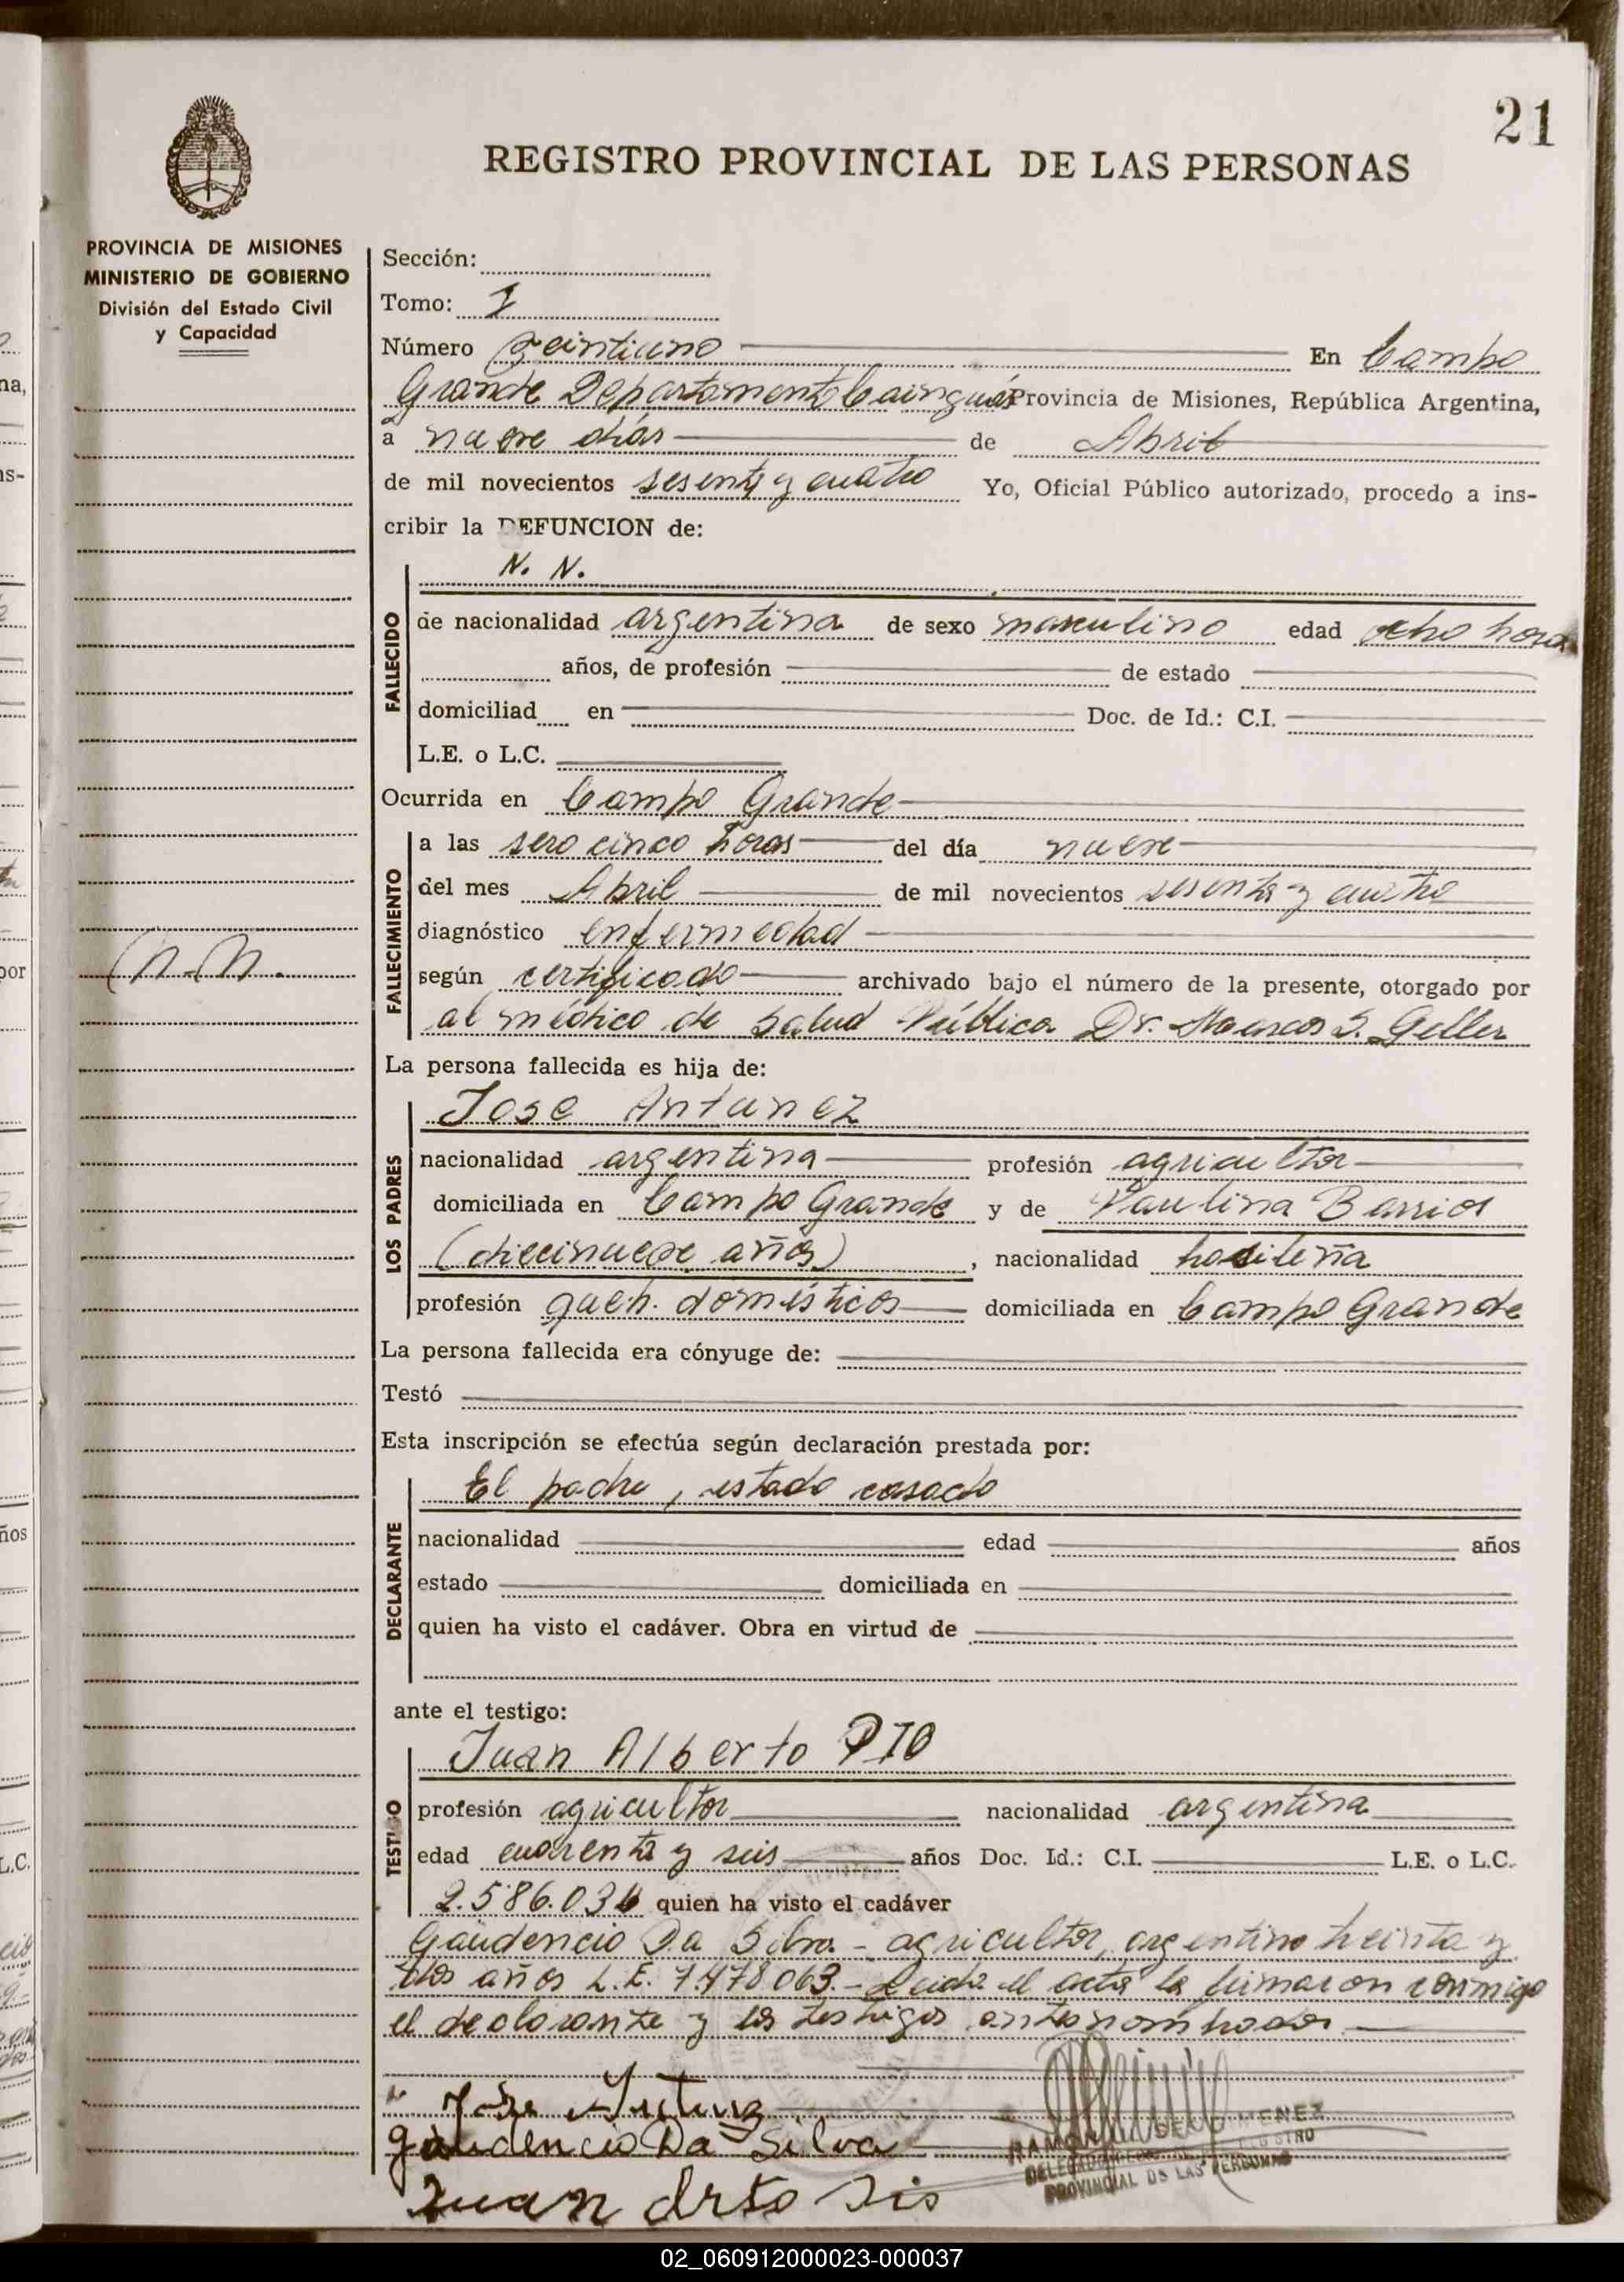 21
REGISTRO PROVINCIAL DE LAS PERSONAS
PROVINCIA DE MISIONES
MINISTERIO DE GOBIERNO
División del Estado Civil
y Capacidad
Sección:
Tomo: I
Número veintiuno En Campo
Grande Departamento Cainguás Provincia de Misiones, República Argentina,
a nueve días de Abril
de mil novecientos sesenta y cuatro Yo, Oficial Público autorizado, procedo a ins-
cribir la DEFUNCION de:
N. N.
FALLECIDO
de nacionalidad argentina de sexo masculino edad ocho horas
años, de profesión de estado
domiciliad en Doc. de Id.: C.I.
L.E. o L.C.
Ocurrida en Campo Grande
FALLECIMIENTO
a las sero cinco horas del día nueve
del mes Abril de mil novecientos sesenta y cuatro
diagnóstico enfermedad
n.n.
según certificado archivado bajo el número de la presente, otorgado por
al médico de Salud Pública Dr. Marcos S. Geller
La persona fallecida es hija de:
LOS PADRES
Jose Antunez
nacionalidad argentina profesión agricultor
domiciliada en Campo Grande y de Paulina Barrios
(diecinueve años), nacionalidad
profesión queh. domésticos domiciliada en Campo Grande
La persona fallecida era cónyuge de:
Testó
Esta inscripción se efectúa según declaración prestada por:
DECLARANTE
El padre, estado casado
nacionalidad edad años
estado domiciliada en
quien ha visto el cadáver. Obra en virtud de
ante el testigo:
TESTIGO
Juan Alberto PIO
profesión agricultor nacionalidad argentina
edad cuarenta y seis años Doc. Id.: C.I. L.E. o L.C.
quien ha visto el cadáver
Gaudencio Da Silva - agricultor, argentino treinta y
años L.E. 7.478.063.- Leida el acta la firmaron conmigo
el declarante y los testigos antenombrados
Jose Antunez
Gaudencio Da Silva
PROVINCIAL DE LAS PERSONAS
Juan
02_060912000023-000037